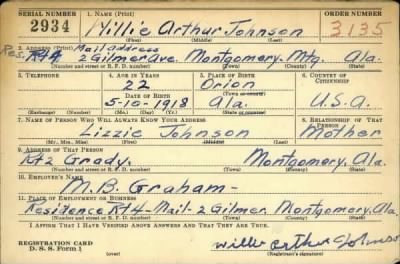 SERIAL NUMBER
1. NAME (Print)
ORDER NUMBER
2934
Willie Arthur Johnson
3135
(First) (Middle) (Last)
2. ADDRESS (Print) Mail address
Res. Rt 4 2 Gilmer Ave. Montgomery. Mtg. Ala.
(Number and street or R. F. D. number) (Town) (County) (State)
3. TELEPHONE
4. AGE IN YEARS
5. PLACE OF BIRTH
6. COUNTRY OF CITIZENSHIP
22
Orion
(Town or county)
DATE OF BIRTH
5-10-1918
Ala.
U.S.A.
(Exchange) (Number)
(Mo.) (Day) (Yr.)
(State or country)
7. NAME OF PERSON WHO WILL ALWAYS KNOW YOUR ADDRESS
8. RELATIONSHIP OF THAT PERSON
Lizzie Johnson
Mother
(Mr., Mrs., Miss) (First) (Middle) (Last)
9. ADDRESS OF THAT PERSON
Rt 2 Grady. Montgomery, Ala.
(Number and street or R. F. D. number) (Town) (County) (State)
10. EMPLOYER'S NAME
M.B. Graham-
11. PLACE OF EMPLOYMENT OR BUSINESS
Residence Rt 4-Mail-2 Gilmer. Montgomery. Ala
(Number and street or R. F. D. number) (Town) (County) (State)
I AFFIRM THAT I HAVE VERIFIED ABOVE ANSWERS AND THAT THEY ARE TRUE.
REGISTRATION CARD
D. S. S. Form 1
(over)
Willie Arthur Johnson
(Registrant's signature)